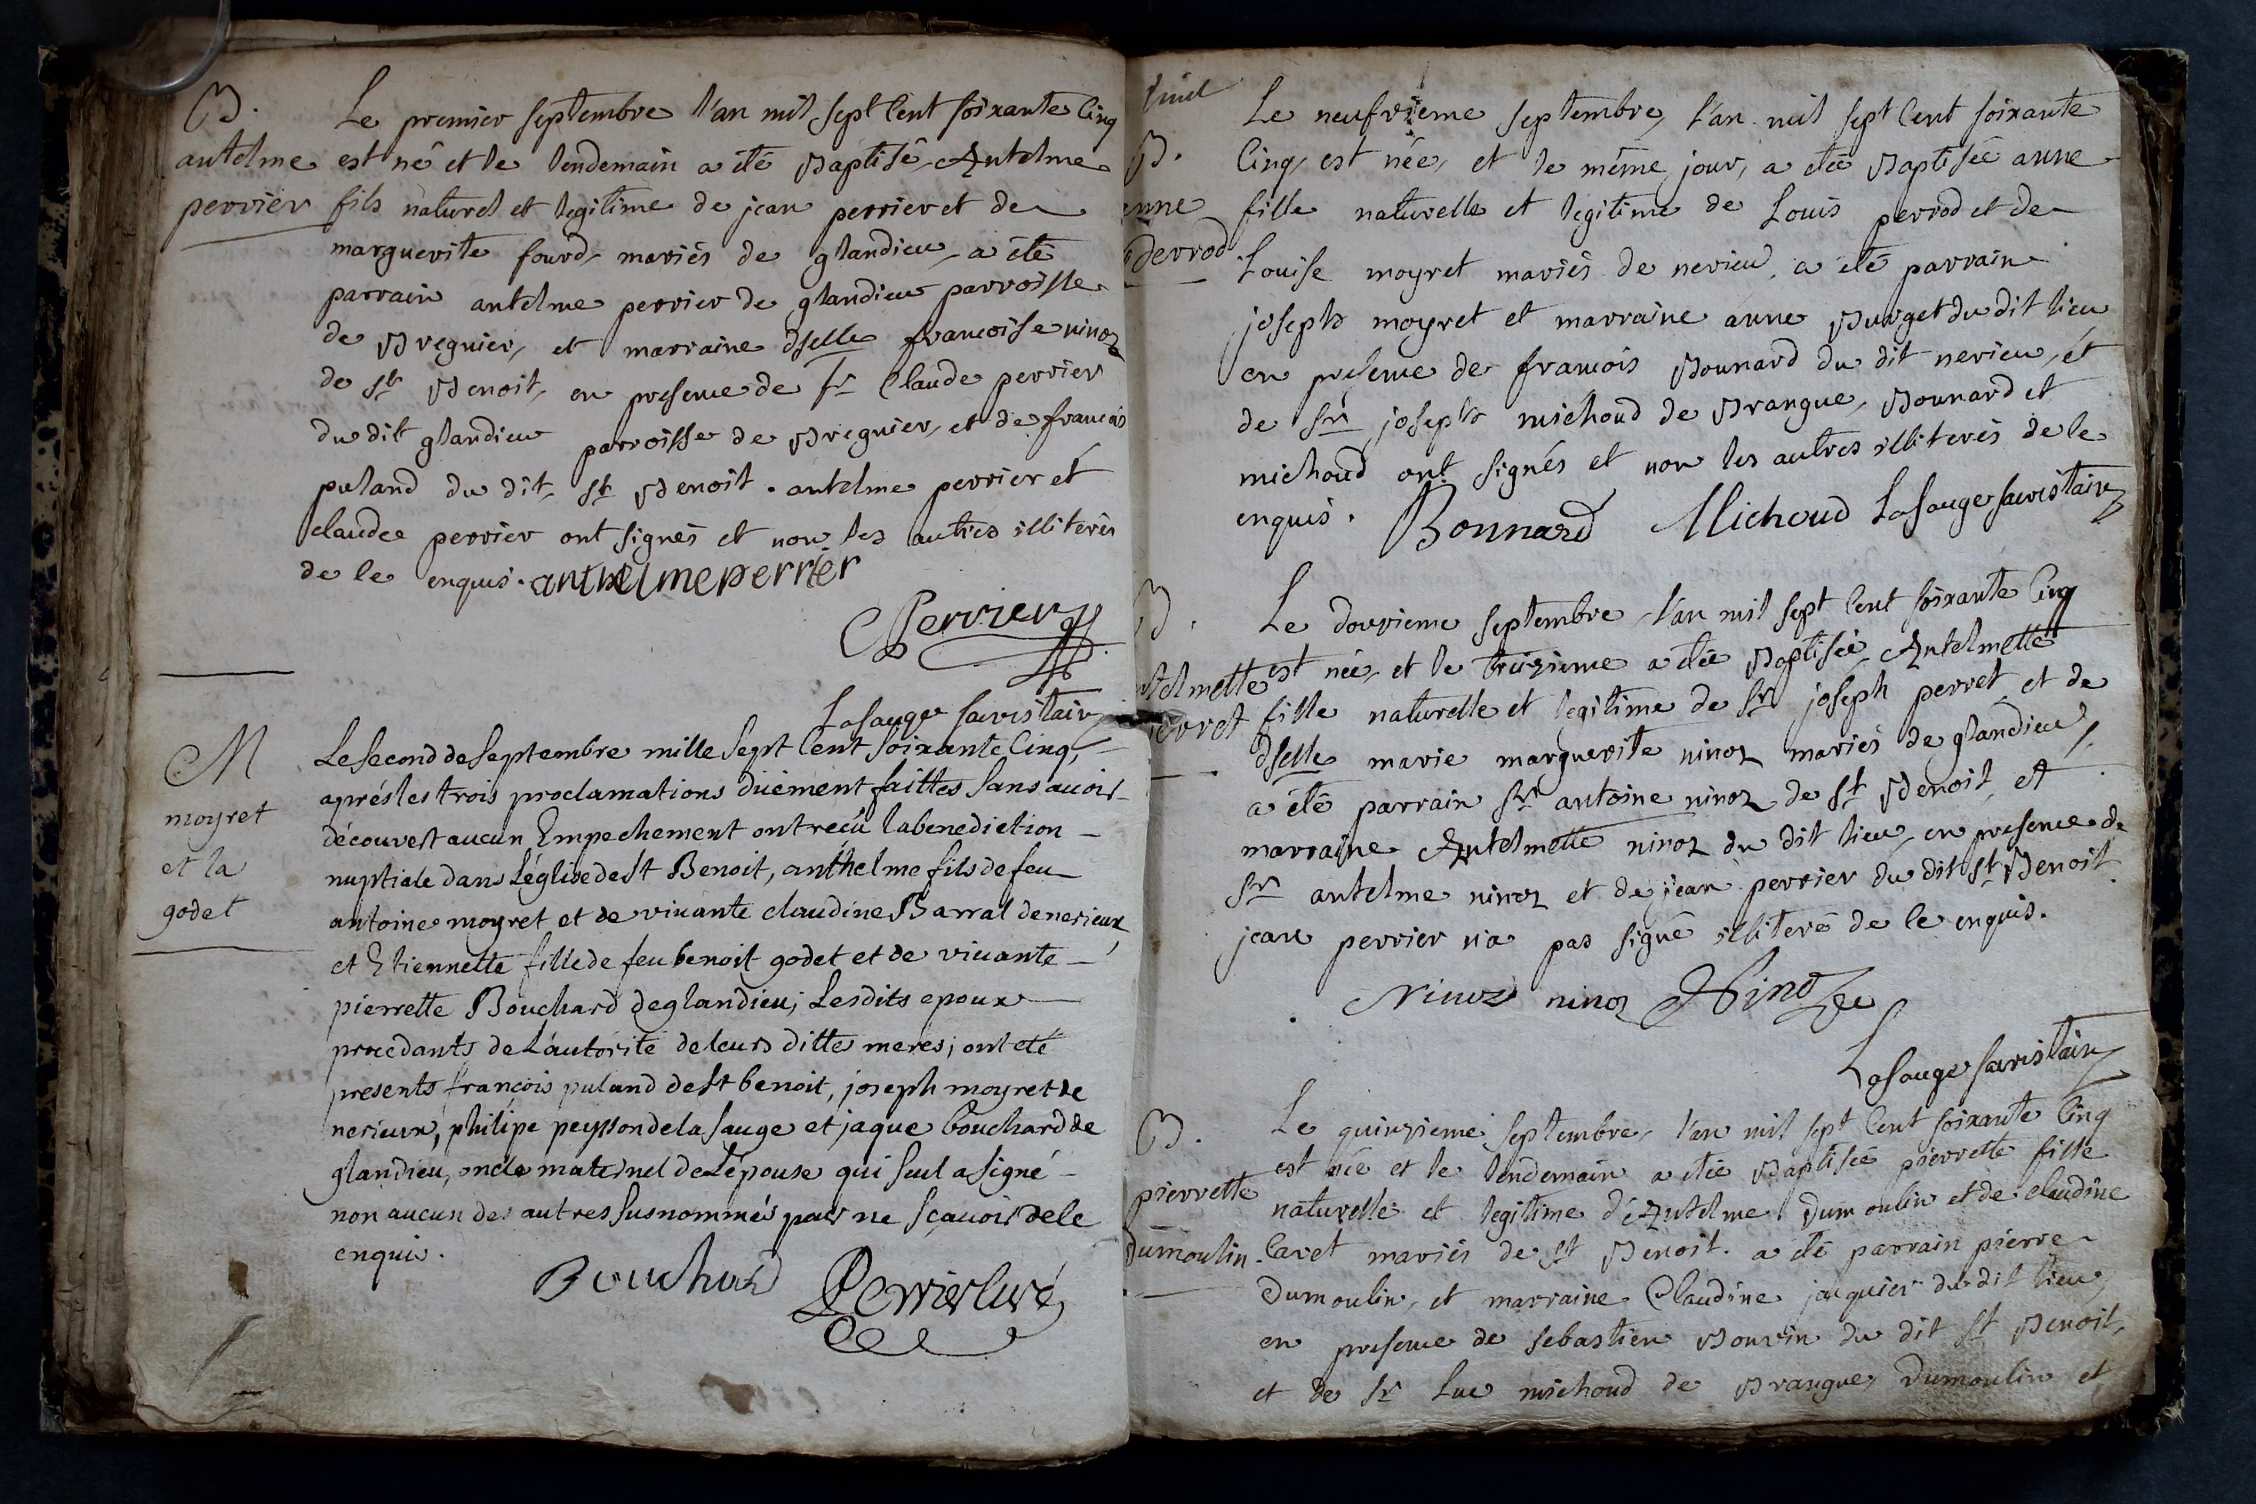 B.
antelme
perrier
Le premier septembre l'an mil sept cent soixante cinq
est né et le lendemain a été Baptisé Antelme
fils naturel et legitime de jean perrier et de
marguerite fourd mariés de glandieu, a été
parrain antelme perrier de glandieu parroisse
de Bregnier, et marraine dselle francoise ninoz
de st Benoit, en presence de sr Claude perrier
du dit glandieu parroisse de Bregnier, et de francois
puland du dit st Benoit. antelme perrier et
claude perrier ont signés et non les autres illiterés
de le enquis. anthelme perrier
Perrier
Lasauge sacristain
M
moyret
et la
godet
Le second de septembre mille sept cent soixante cinq,
aprés les trois proclamations düement faittes sans avoir
découvert aucun Empechement ont reçû la benediction
nuptiale dans L'église de st Benoit, anthelme fils de feu
antoine moyret et de vivante claudine Barral de nerieux,
et Etiennette fille de feu benoit godet et de vivante
pierrette Bouchard de glandieu; Lesdits epoux
procedants de L'autorité de leurs ditte meres; ont eté
presents françois puland de st benoit, joseph moyret de
nerieux, philipe peysson de la sauge et jaque bouchard de
glandieu, oncle maternel de L'épouse qui seul a signé
non aucun des autres susnommés pour ne sçavoir de le
enquis.
Bouchard Perrier curé
B.
anne
perrod
Le neufvieme septembre, l'an mil sept cent soixante
cinq, est née, et le même jour, a eté Baptisée anne
fille naturelle et legitime de Louis perrod et de
Louise moyret mariés de nerieu, a été parrain
joseph moyret et marraine anne Burget du dit lieu
en presence de francois Bonnard du dit nerieu, et
de sr joseph michoud de Brangue, Bonnard et
michoud ont signés et non les autres illiterés de le
enquis. Bonnard Michoud Lasauge sacristain
B.
telmette
perret
Le douzieme septembre l'an mil sept cent soixante cinq
est née, et le treizieme a eté Baptisée Antelmette
fille naturelle et legitime de sr joseph perret et de
dselle marie marguerite ninoz mariés de glandieu,
a été parrain sr antoine ninoz de st Benoit, et
marraine Antelmette ninoz du dit lieu, en presence de
sr antelme ninoz et de jean perrier du dit st Benoit
jean perrier n'a pas signé illiteré de le enquis.
Ninoz ninoz Ninoz
Lasauge sacristain
B.
pierrette
Dumoulin.
Le quinzieme septembre, l'an mil sept cent soixante cinq
est née et le lendemain a eté Baptisée pierrette fille
naturelle et legitime d'Antelme Dumoulin et de claudine
Caret mariés de st Benoit. a été parrain pierre
Dumoulin, et marraine Claudine jaquier du dit lieu,
en presence de sebastien Bouvin du dit st Benoit,
et de sr Luc michoud de Brangue, Dumoulin et